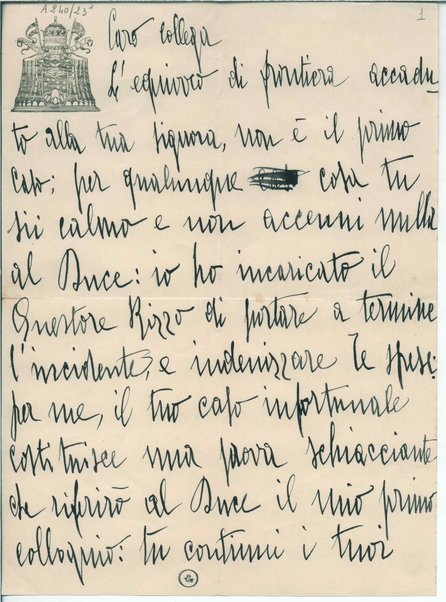 A 240/23¹
1
Caro collega
L'equivoco di frontiera accadu-
to alla tua signora, non è il primo
caso; per qualunque cosa tu
sii calmo e non accenni nulla
al Duce: io ho incaricato il
Questore Rizzo di portare a termine
l'incidente, e indenizzare le spese:
per me, il tuo caso infortunale
costituisce una prova schiacciante
che riferirò al Duce il mio primo
colloquio: tu continui i tuoi